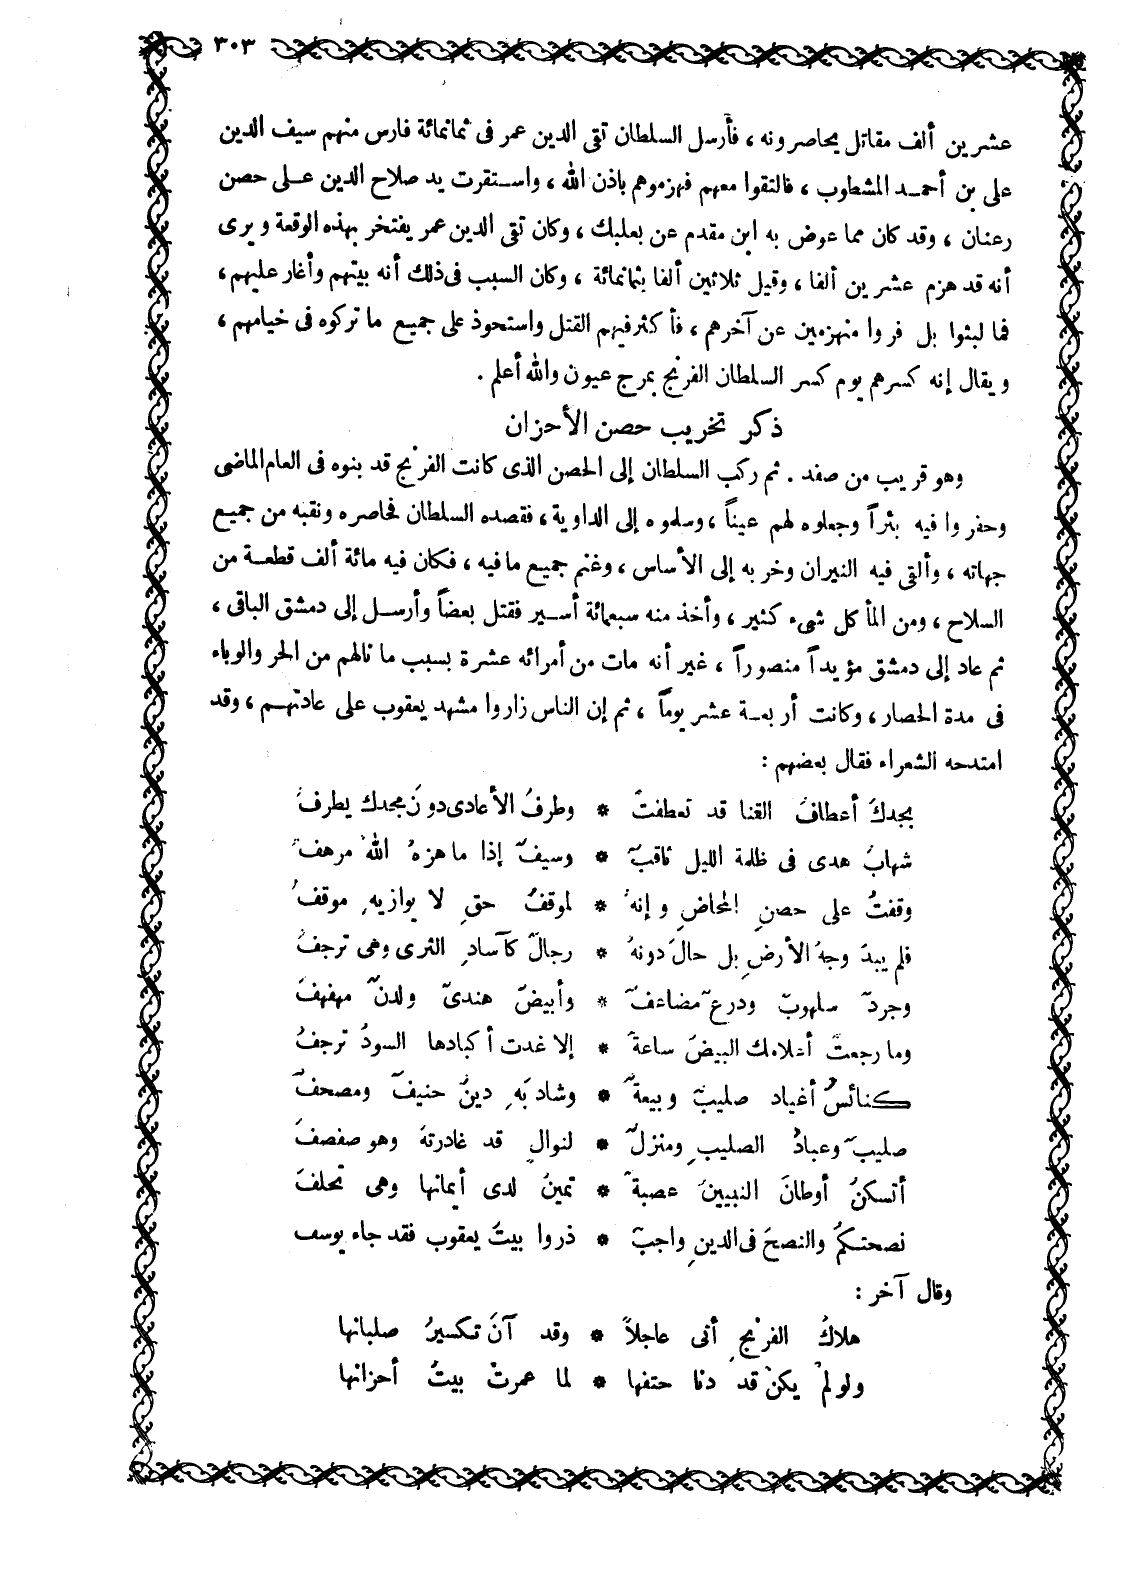 ٣٠٣
عشرين ألف مقاتل يحاصرونه ، فأرسل السلطان تقى الدين عمر فى ثمانمائة فارس منهم سيف الدين
على بن أحمد المشطوب ، فالتقوا معهم فهزموهم باذن الله ، واستقرت يد صلاح الدين على حصن
رعنان ، وقد كان مما عوض به ابن مقدم عن بعلبك ، وكان تقى الدين عمر يفتخر بهذه الوقعة ويرى
أنه قد هزم عشرين ألفا ، وقيل ثلاثين ألفا بثمانمائة ، وكان السبب فى ذلك أنه بيتهم وأغار عليهم ،
فما لبثوا بل فروا منهزمين عن آخرهم ، فأكثر فيهم القتل واستحوذ على جميع ما تركوه فى خيامهم ،
ويقال إنه كسرهم يوم كسر السلطان الفرنج بمرج عيون والله أعلم .
ذكر تخريب حصن الأحزان
وهو قريب من صفد . ثم ركب السلطان إلى الحصن الذى كانت الفرنج قد بنوه فى العام الماضى
وحفروا فيه بئراً وجعلوه لهم عيناً ، وسلموه إلى الداوية ، فقصده السلطان فحاصره ونقبه من جميع
جهاته ، وألقى فيه النيران وخربه إلى الأساس ، وغنم جميع ما فيه ، فكان فيه مائة ألف قطعة من
السلاح ، ومن المأكل شىء كثير ، وأخذ منه سبعمائة أسير فقتل بعضاً وأرسل إلى دمشق الباقى ،
ثم عاد إلى دمشق مؤيداً منصوراً ، غير أنه مات من أمرائه عشرة بسبب ما نالهم من الحر والوباء
فى مدة الحصار ، وكانت أربعة عشر يوماً ، ثم إن الناس زاروا مشهد يعقوب على عادتهم ، وقد
امتدحه الشعراء فقال بعضهم :
بجدكَ أعطافَ القنا قد تعطفتْ * وطرفُ الأعادى دونَ مجدك يطرفُ
شهابُ هدى فى ظلمة الليل ثاقبٌ * وسيفٌ إذا ما هزهُ اللهُ مرهفُ
وقفتُ على حصنِ المخاضِ وإنهُ * لموقفُ حقٍ لا يوازيهِ موقفُ
فلم يبدَ وجهُ الأرضِ بل حالَ دونهُ * رجالٌ كآسادِ الثرى وهى ترجفُ
وجردٌ سلهوبٌ ودرعٌ مضاعفٌ * وأبيضٌ هندىٌ ولدنٌ مهفهفَ
وما رجعتْ أعلامك البيضَ ساعةً * إلا غدت أكبادها السودُ ترجفُ
كنائسُ أغياد صليبٌ وبيعةٌ * وشاد بهِ دينٌ حنيفٌ ومصحفٌ
صليبٌ وعبادُ الصليبِ ومنزلٌ * لنوالٍ قد غادرتهَ وهو صفصفَ
أتسكنُ أوطانَ النبيينَ عصبةٌ * تمينُ لدى أيمانها وهى تحلفَ
نصحتكمُ والنصحَ فى الدينِ واجبٌ * ذروا بيتَ يعقوب فقد جاء يوسف
وقال آخر :
هلاكُ الفرنجِ أتى عاجلاً * وقد آنَ تكسيرُ صلبانها
ولو لمْ يكنْ قد دنا حتفها * لما عمرتْ بيتُ أحزانها